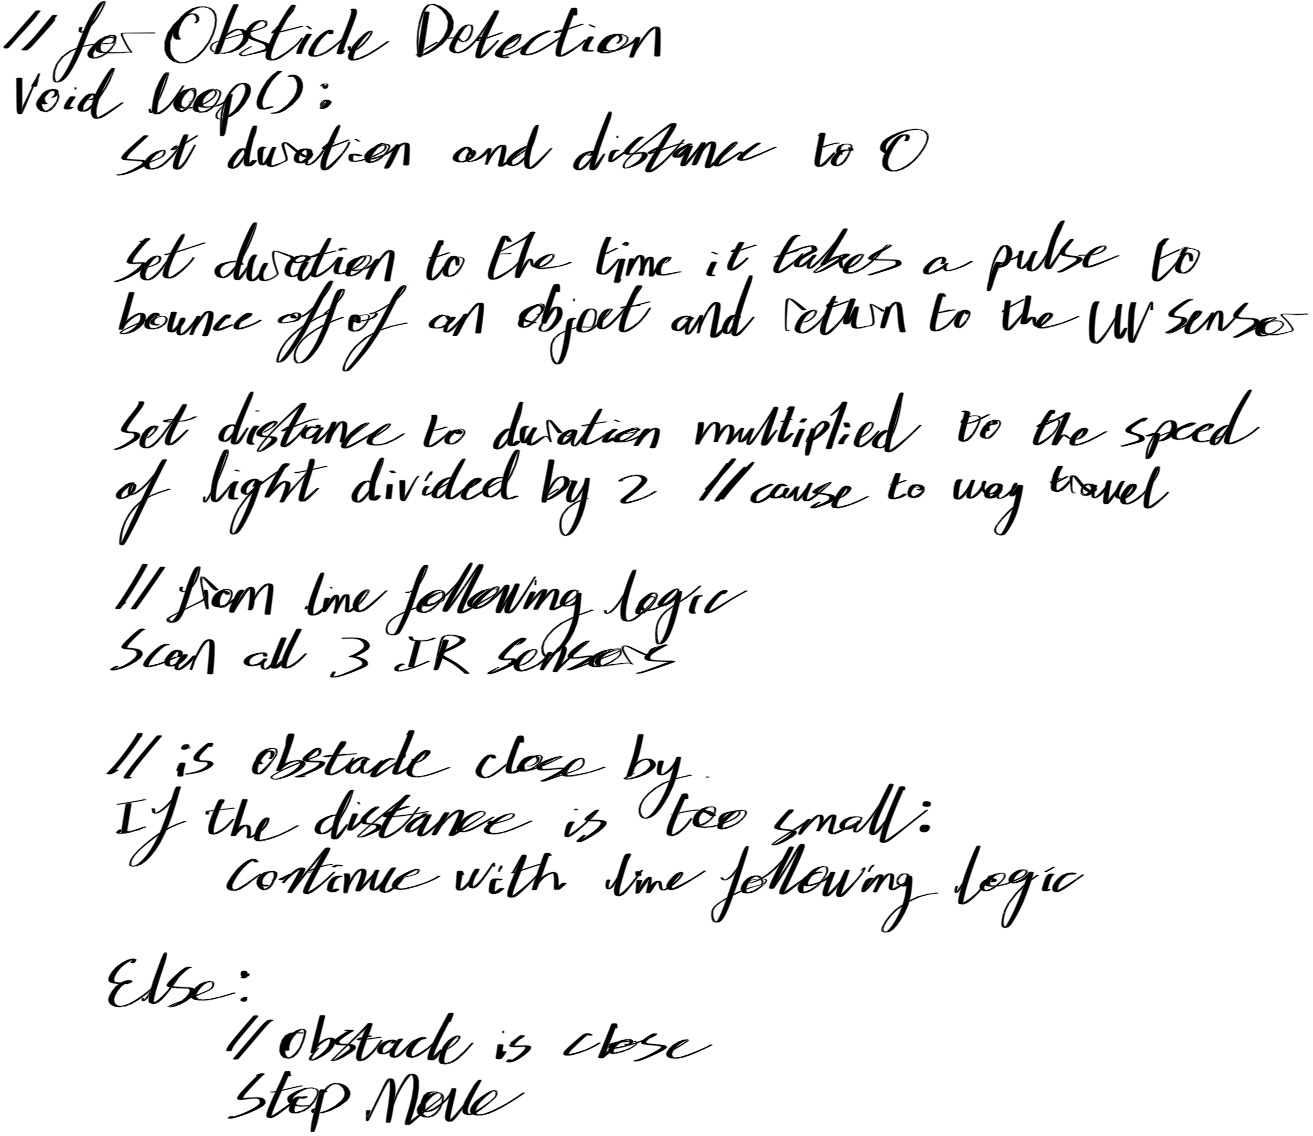 // for Obsticle Detection
Void loop():
Set duration and distance to 0
Set duration to the time it takes a pulse to
bounce off of an object and return to the UV sensor
Set distance to duration multiplied to the speed
of light divided by 2 // cause to way travel
// from line following logic
Scan all 3 IR sensors
// is obstacle close by
If the distance is too small:
continue with line following logic
Else:
// obstacle is close
Stop Move